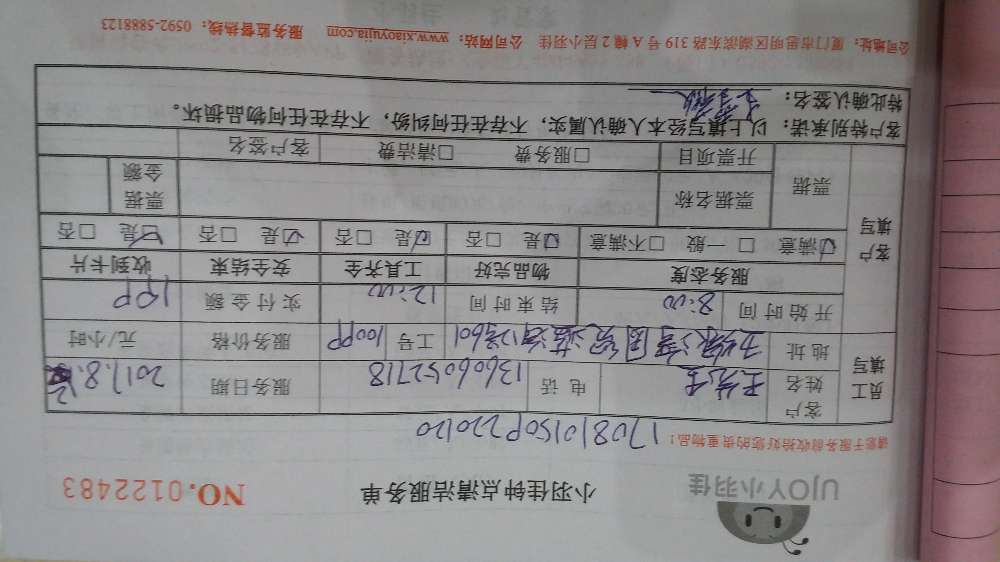 UJOY小羽佳
小羽佳钟点清洁服务单
NO.0122483
请您于服务前收拾好您的贵重物品！
170810150P220120
员工填写
客户姓名 王先生 电话 13606052718 服务日期 2017.8.12
地址 工号 100PP 服务价格 元/小时
开始时间 8:00 结束时间 12:00 实付金额 1PP
客户填写
服务态度 物品完好 工具齐全 安全结束 收到卡片
☑满意 □一般 □不满意 ☑是 □否 ☑是 □否 ☑是 □否 ☑是 □否
票据 票据名称 票据金额
开票项目 □服务费 □清洁费 客户签名
客户特别承诺：以上填写经本人确认属实，不存在任何纠纷，不存在任何物品损坏。
特此确认签名：
公司地址：厦门市思明区湖滨东路319号A幢2层小羽佳 公司网站：www.xiaoyujia.com 服务监督热线：0592-5888123